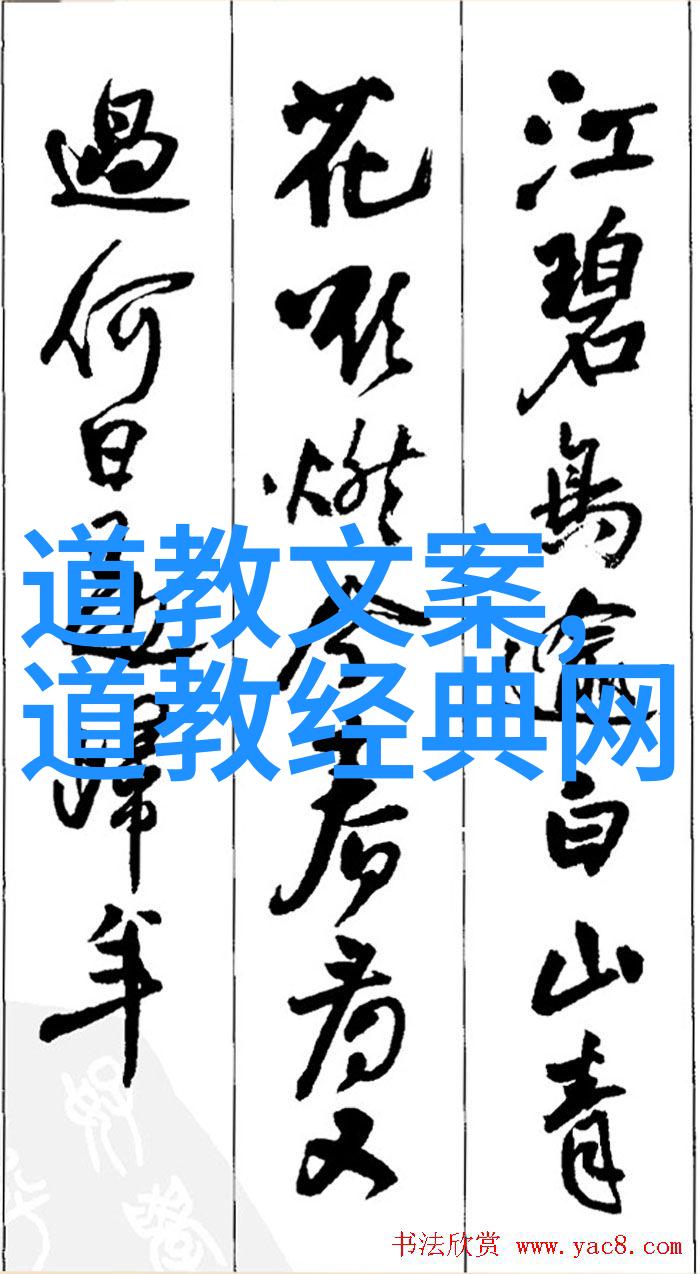 江碧鳥逾白山青
花欲燃今春看又
過何日是歸年
道教文案,
道教经典网
书法欣赏 www.yac8.com